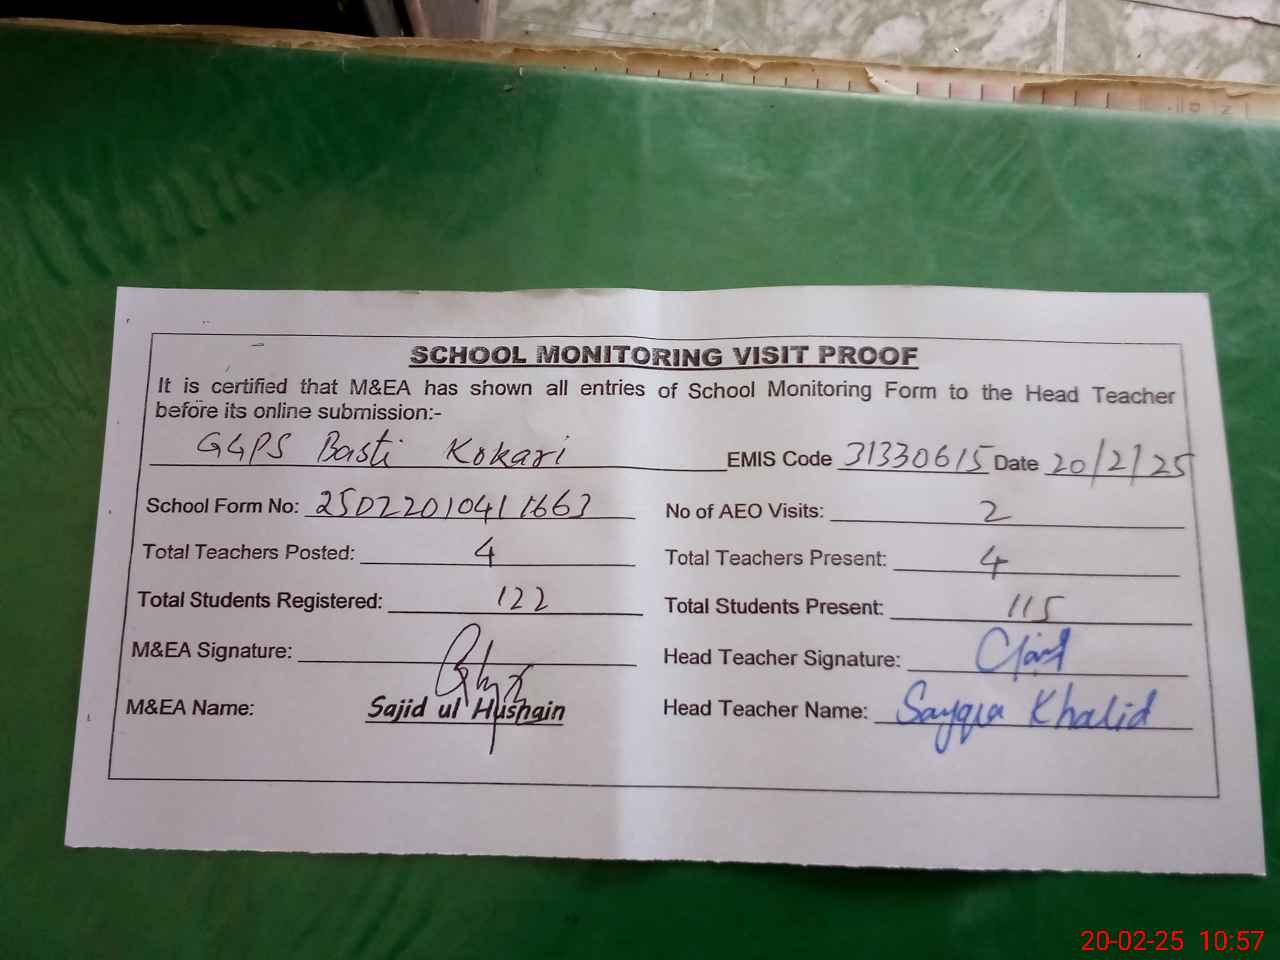 SCHOOL MONITORING VISIT PROOF
It is certified that M&EA has shown all entries of School Monitoring Form to the Head Teacher
before its online submission:-
GGPS Basti Kokari EMIS Code 31330615 Date 20/2/25
School Form No: 25D22010411663 No of AEO Visits: 2
Total Teachers Posted: 4 Total Teachers Present: 4
Total Students Registered: 122 Total Students Present: 115
M&EA Signature: Head Teacher Signature:
M&EA Name: Sajid ul Hushain Head Teacher Name: Sayqra Khalid
20-02-25 10:57